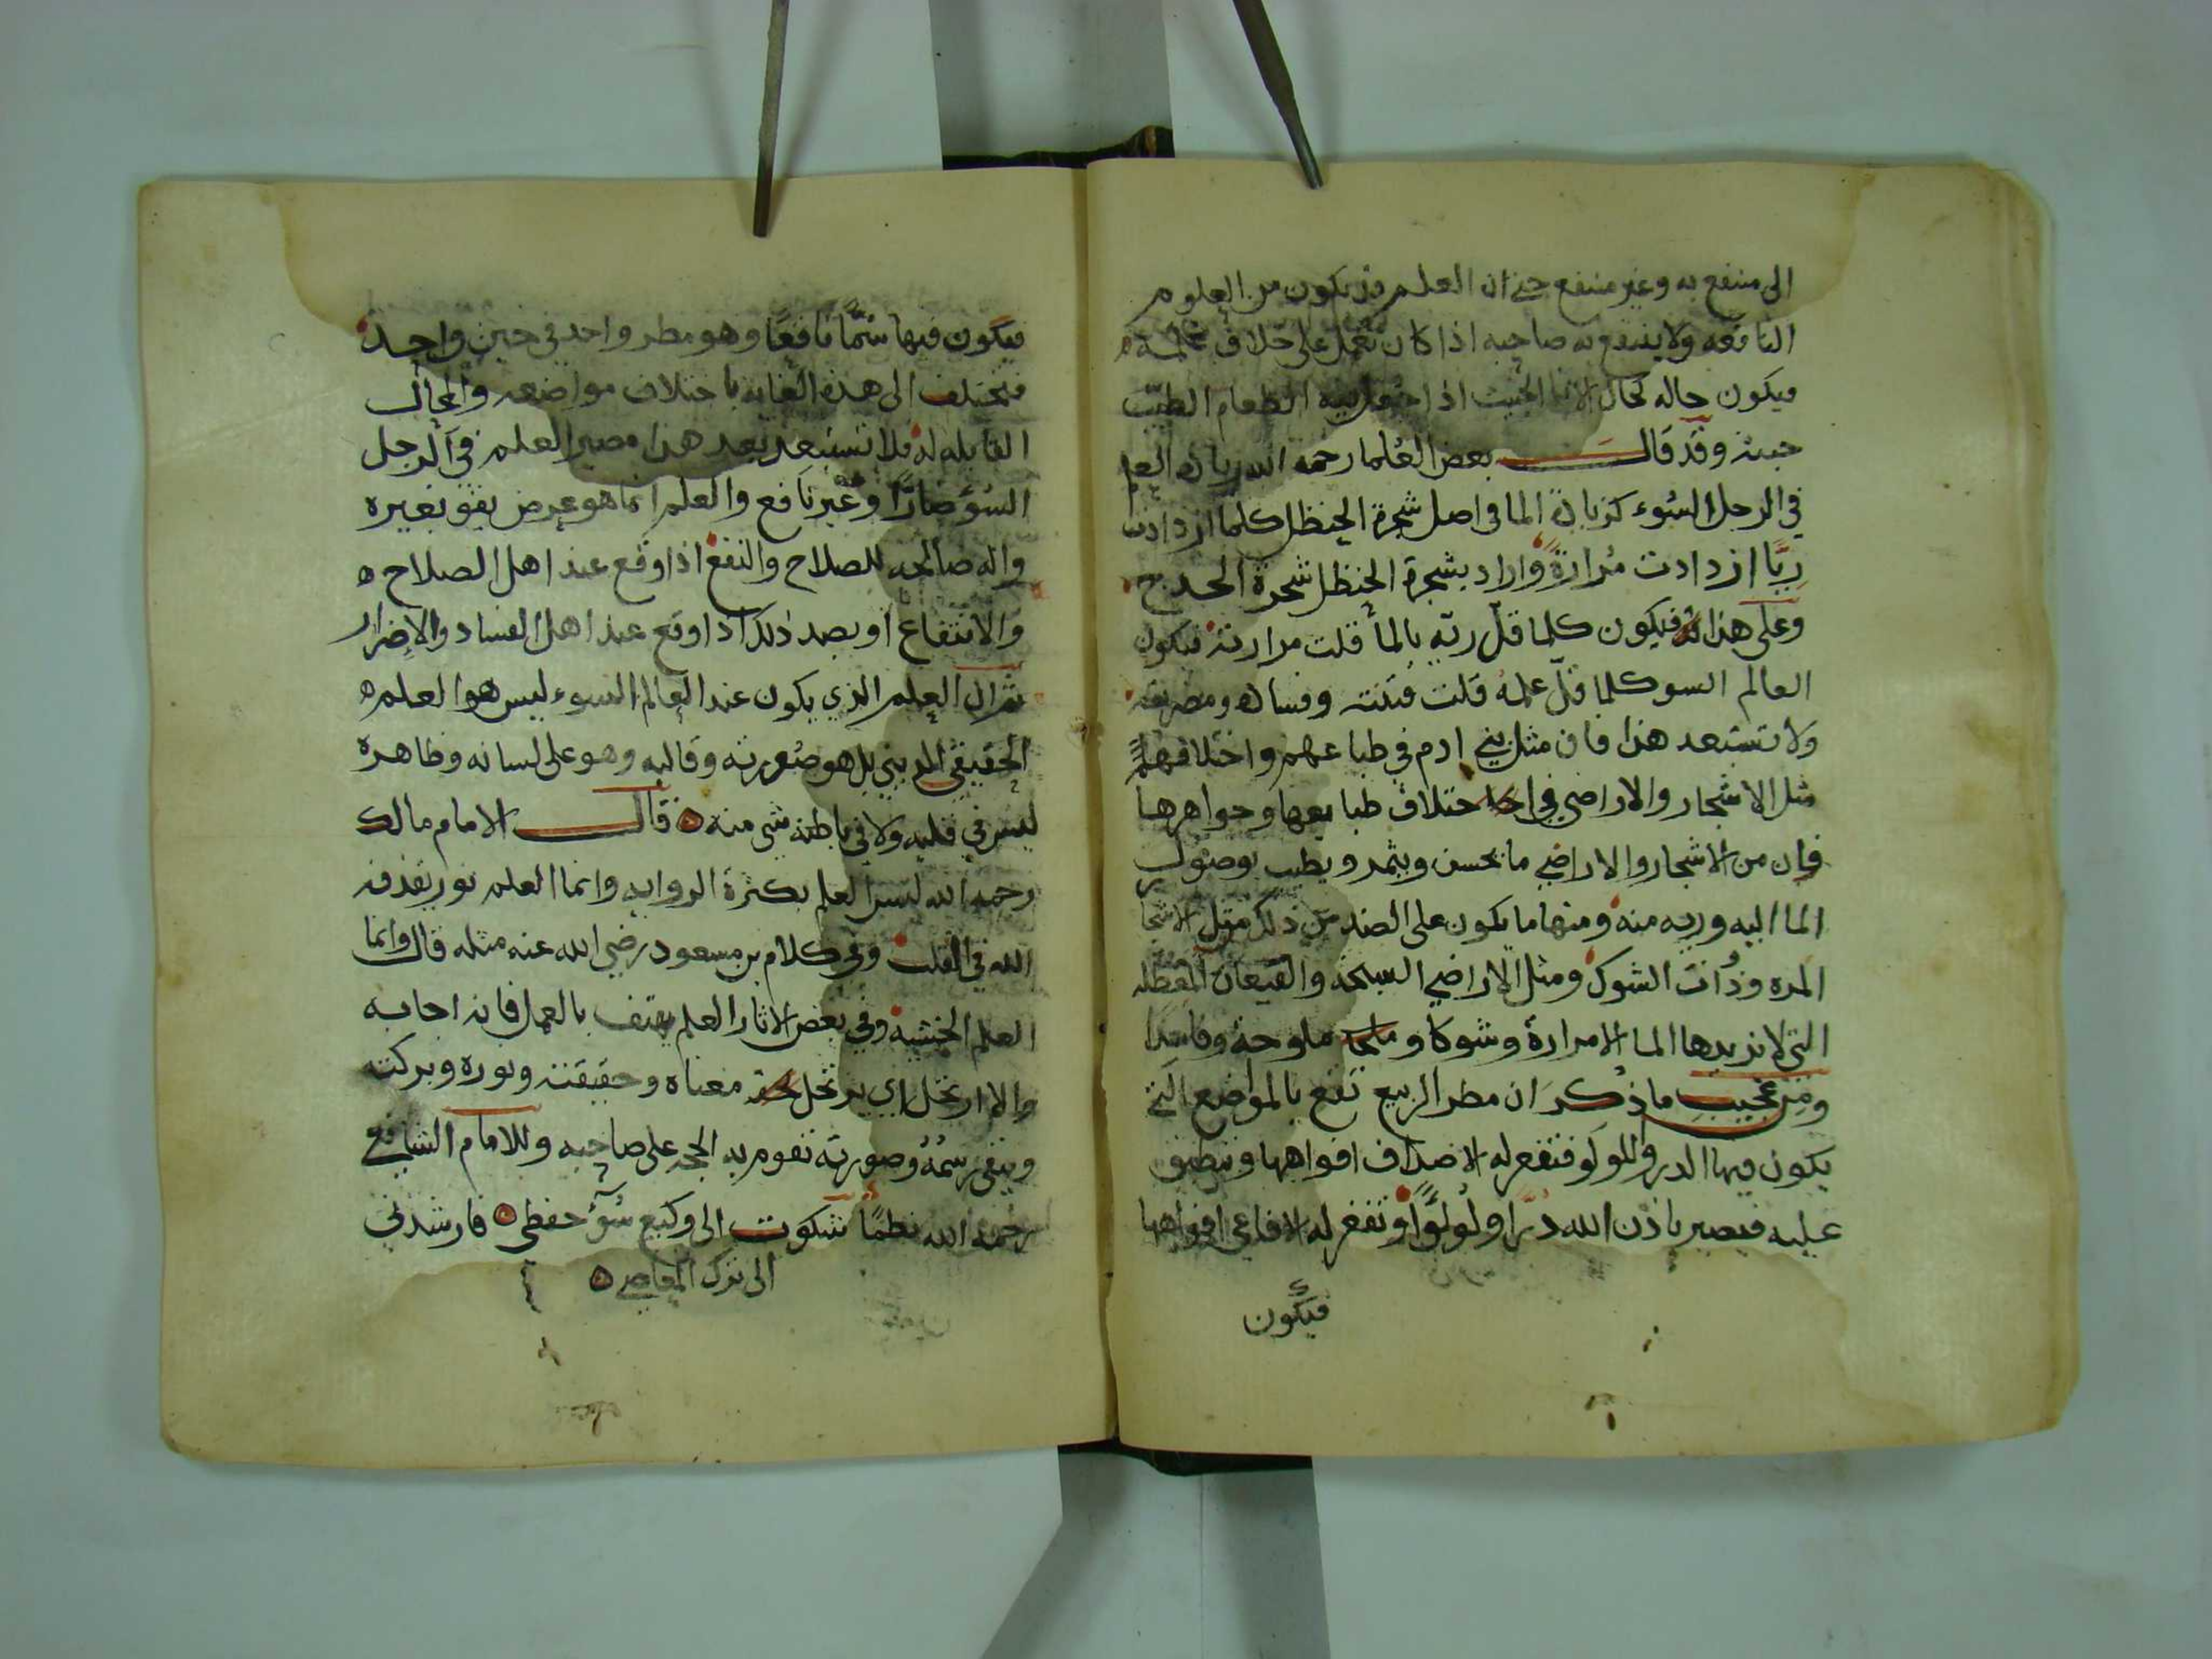 الى منتفع به وغير منتفع حتى ان العلم قد يكون من العلوم
النافعه ولا ينتفع به صاحبه اذا كان يعمل على خلاف علمه
فيكون حاله كحال الانا الخبيث اذا جعل فيه الطعام الطيّب
خبثه وقد قال بعض العُلما رحمه الله زيادة العلم
في الرجل السُوء كزيادة الما في اصل شجرة الحنظل كلما ازدادت
رِيًّا ازدادت مُرارةً واراد بشجرة الحنظل شجرة الحدج
وعلى هذا فيكون كلما قلّ ريّه بالمأ قلت مرارته فيكون
العالم السو كلما قلّ علمه قلت فتنته وفساده ومضرته
ولا تستبعد هذا فان مثل بني ادم في طباعهم واختلافهم
مثل الاشجار والاراضي في اختلاف طبايعها وجواهرها
فان من الاشجار والاراضي ما يحسن ويثمر ويطيب بوصول
الما اليه وريه منه ومنها ما يكون على الضد من ذلك مثل الاشجا
المره وذُات الشوك ومثل الاراضي السبخه والقيعان المعطله
التي لا يزيدها الما الا مرارة وشوكا و ملوحة وفاسدا
ومن عجيب ما ذكر ان مطر الربيع تقع بالمواضع التي
يكون فيها الدر واللولو فتفغر له الاصداف افواهها وتنطبق
عليه فيصير باذن الله درّا ولُولوًا وتفغر له الافاعي افواهها
فيكون
فيكون فيها سُمًّا ناقعًا وهو مطر واحد في حين واحد
فيختلف الى هذه الغايه باختلاف مواضعه والمحال
القابله له فلا تستبعد بعد هذا مصير العلم في الرجل
السُؤ ضارًّا وغير نافع والعلم انما هو عرض يقو بغيره
واله صالحه للصلاح والنفع اذا وقع عند اهل الصلاح
والانتفاع او بصد ذلك اذا وقع عند اهل الفساد والاضرار
ثم ان العلم الذي يكون عند العالم السوء ليس هو العلم
الحقيقي الديني بل هو صُورته وقالبه وهو على لسانه وظاهره
ليس في قلبه ولا في باطنه شي منه قال الامام مالك
رحمه الله ليس العلم بكثرة الروايه وانما العلم نور يقذفه
الله في القلب وفي كلام بن مسعود رضي الله عنه مثله قال وانما
العلم الخشيه وفي بعض الاثار العلم يهتف بالعمل فان اجابه
والا ارتحل اي يرتحل معناه وحقيقته ونوره وبركته
ويبقى رسمُهُ وصورته تقوم به الحجه على صاحبه وللامام الشافعي
رحمه الله نظمًا شكوت الى وكيع سُؤَ حفظي فارشدني
الى ترك المعاصي